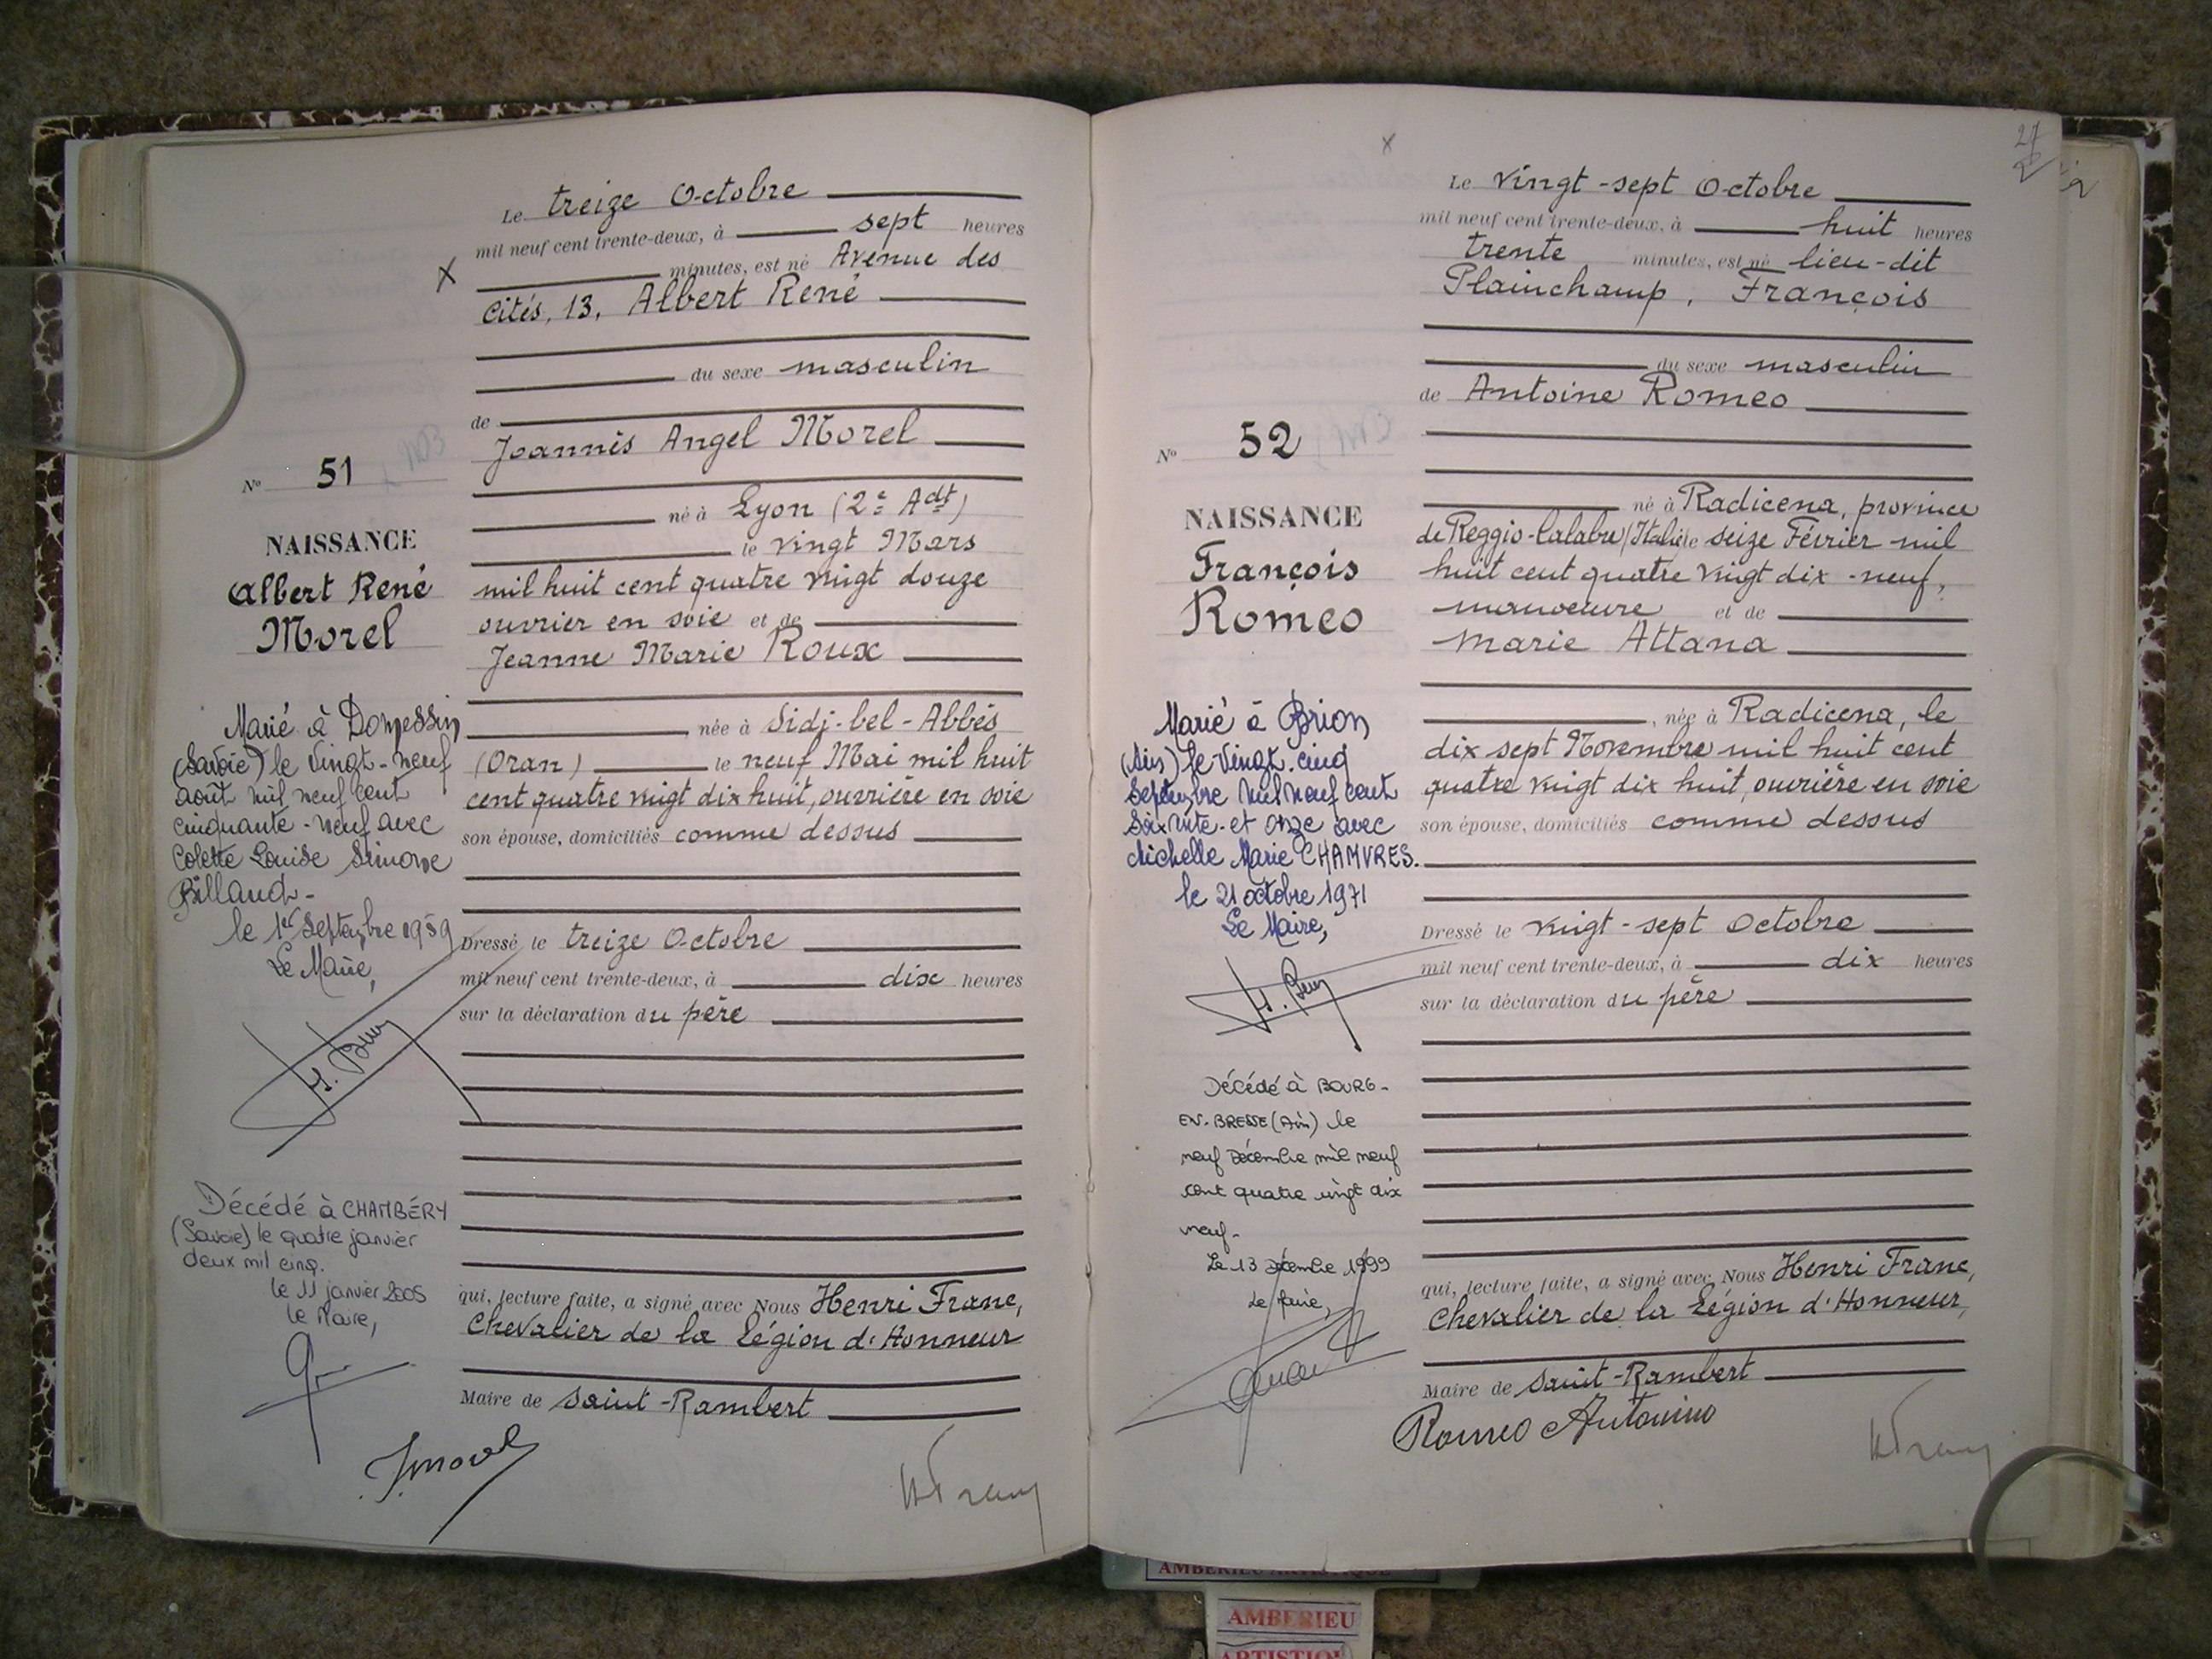 Le treize Octobre
mil neuf cent trente-deux, à sept heures
minutes, est né Avenue des
Cités, 13, Albert René
du sexe masculin
de
Joannis Angel Morel
né à Lyon (2e Adt)
le vingt Mars
mil huit cent quatre vingt douze
ouvrier en soie et de
Jeanne Marie Roux
née à Sidi-bel-Abbés
(Oran) le neuf Mai mil huit
cent quatre vingt dix huit, ouvrière en soie
son épouse, domiciliés comme dessus
Dressé le treize Octobre
mil neuf cent trente-deux, à dix heures
sur la déclaration du père
qui, lecture faite, a signé avec Nous Henri Franc,
Chevalier de la Légion d'Honneur
Maire de Saint-Rambert
X
No 51
NAISSANCE
Albert René
Morel
Marié à Domessin
(Savoie) le vingt-neuf
août mil neuf cent
cinquante-neuf avec
Colette Louise Simone
Billaud-
le 1er Septembre 1959
Le Maire,
Décédé à CHAMBÉRY
(Savoie) le quatre janvier
deux mil cinq.
le 11 janvier 2005
Le Maire,
X
27
Le vingt-sept Octobre
mil neuf cent trente-deux, à huit heures
trente minutes, est né lieu-dit
Plainchamp, François
du sexe masculin
de Antoine Romeo
né à Radicena, province
de Reggio-Calabre (Italie) le seize Février mil
huit cent quatre vingt dix-neuf,
manoeuvre et de
Marie Attana
, née à Radicena, le
dix sept Novembre mil huit cent
quatre vingt dix huit, ouvrière en soie
son épouse, domiciliés comme dessus
Dressé le vingt-sept Octobre
mil neuf cent trente-deux, à dix heures
sur la déclaration du père
qui, lecture faite, a signé avec Nous Henri Franc,
Chevalier de la Légion d'Honneur,
Maire de Saint-Rambert
Romeo Antonino
No 52
NAISSANCE
François
Romeo
Marié à Brion
(Ain) le vingt-cinq
Septembre mil neuf cent
soixante-et onze avec
Michelle Marie CHAMVRES.
le 21 octobre 1971
Le Maire,
Décédé à BOURG-
EN-BRESSE (Ain) le
neuf Décembre mil neuf
cent quatre vingt dix
neuf-
Le 13 décembre 1999
Le Maire,
AMBERIEU ARTISTIQUE
AMBERIEU